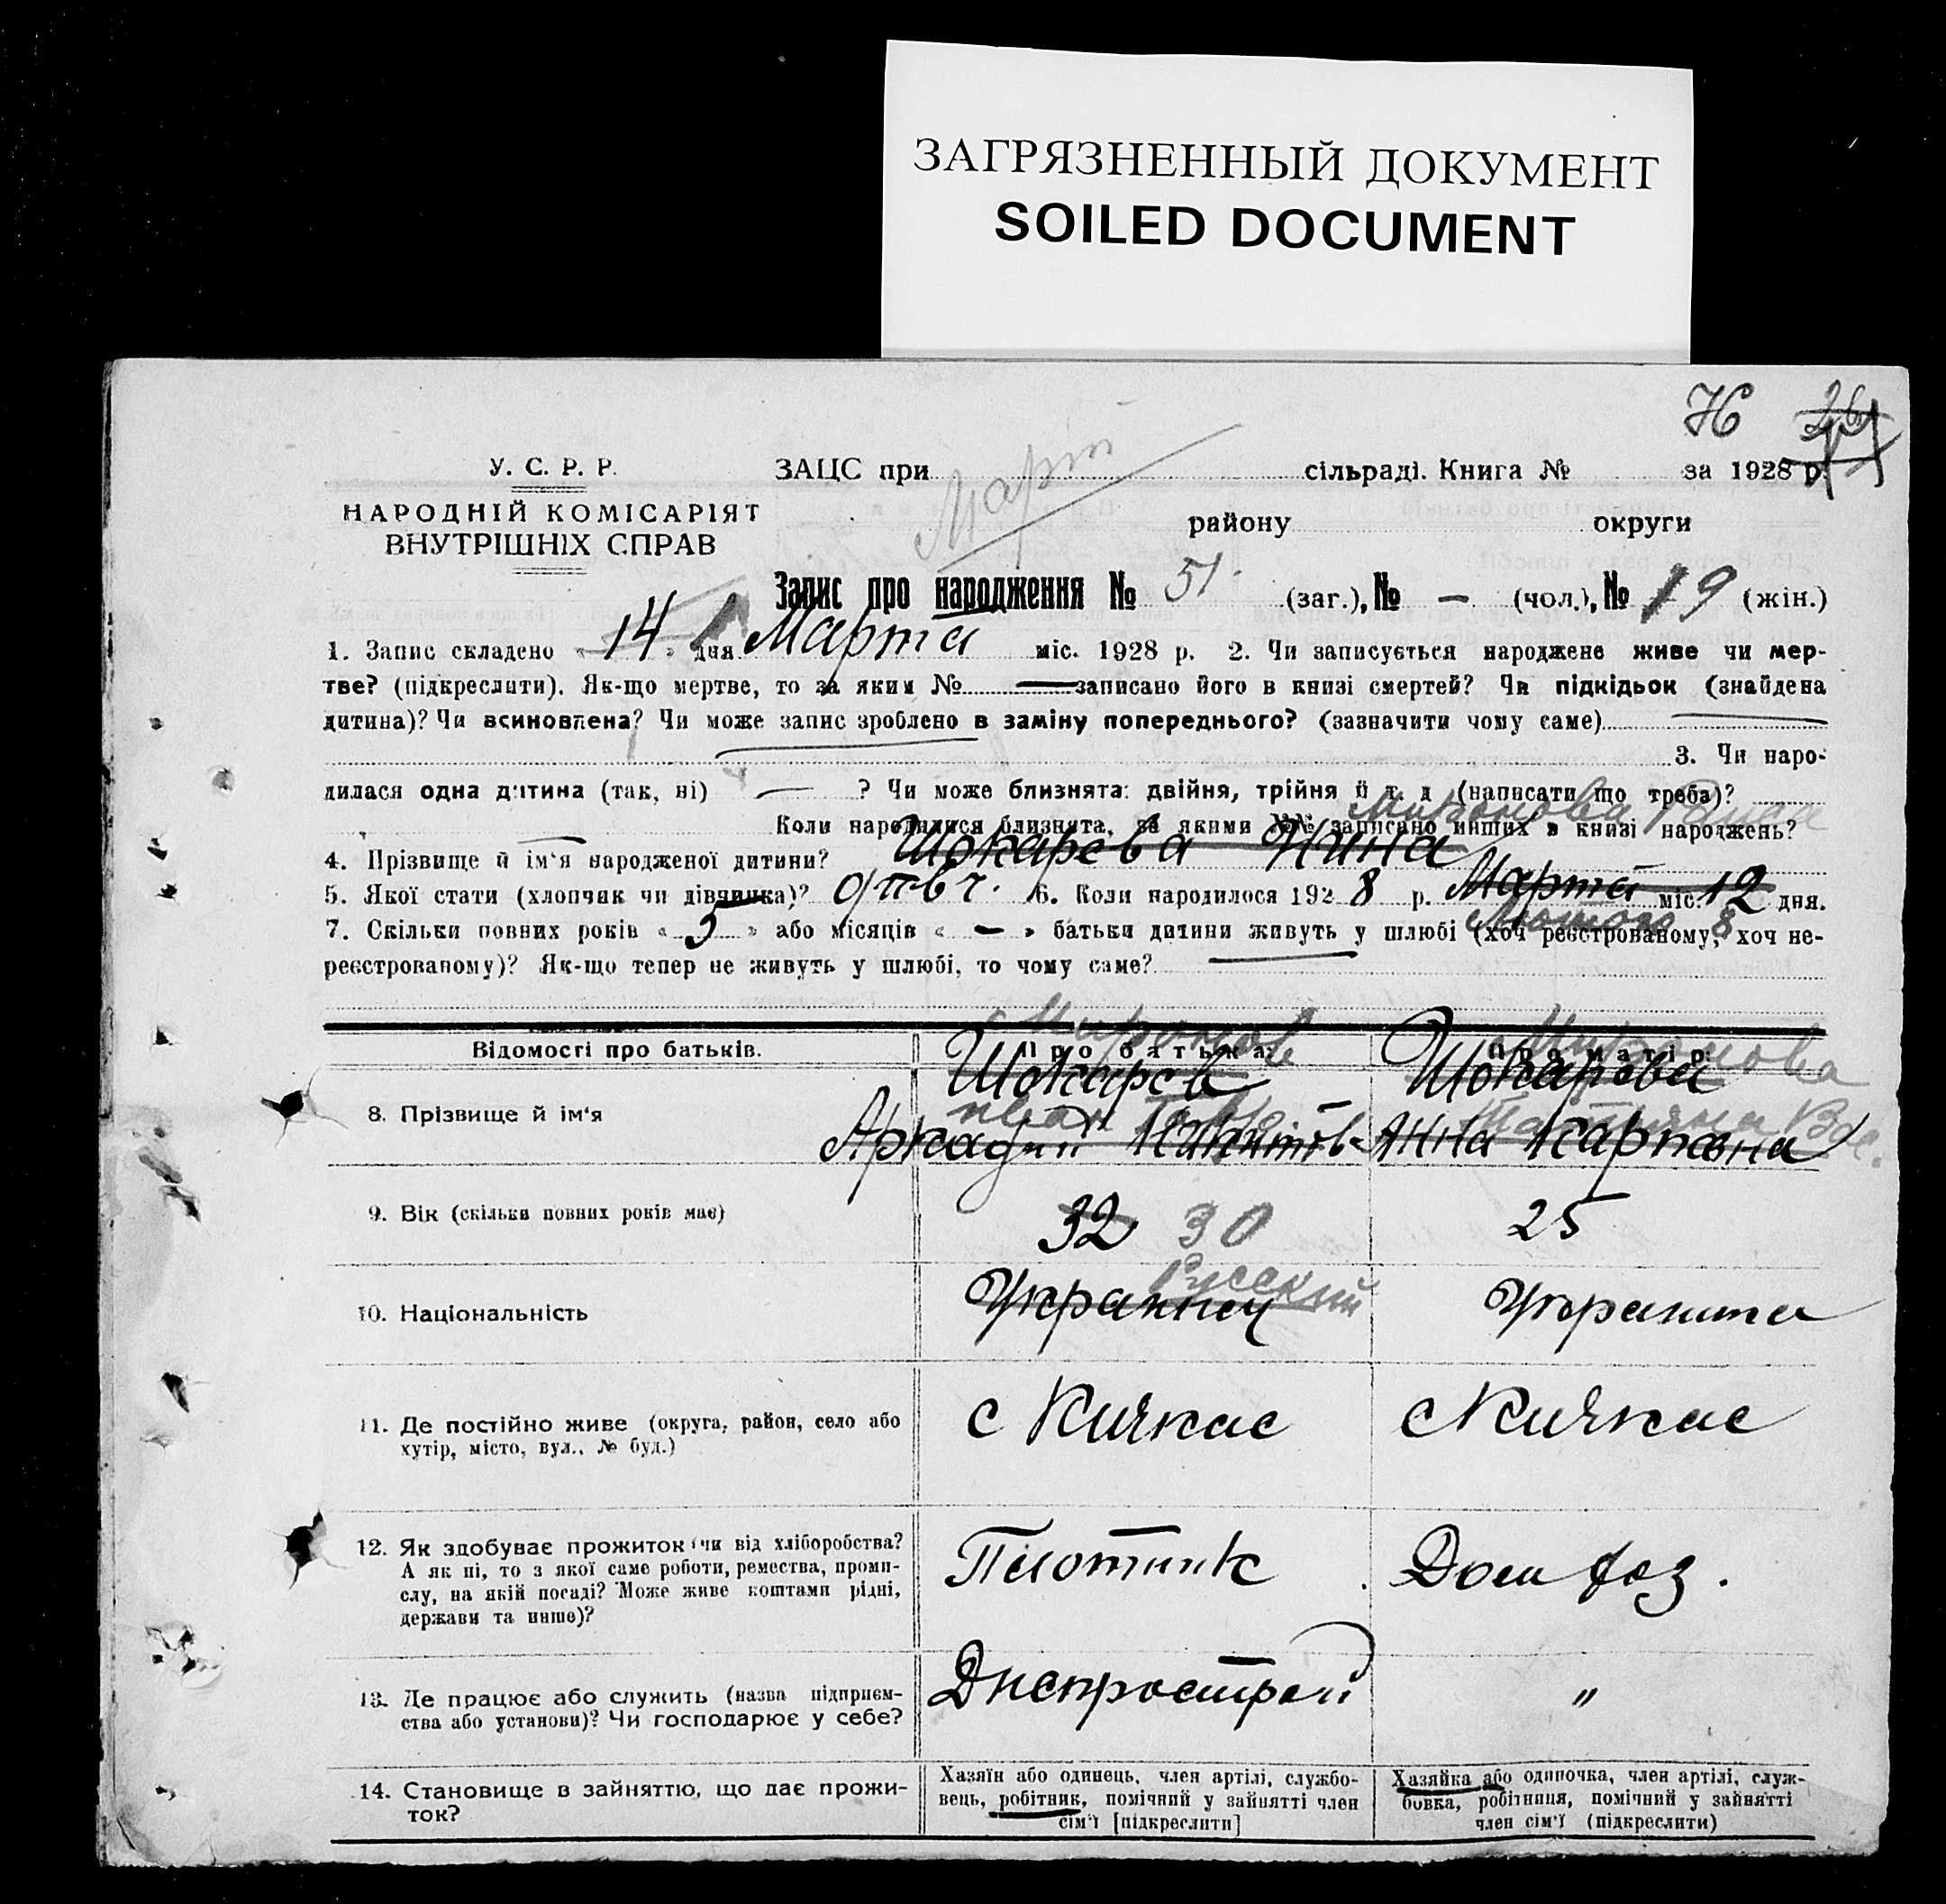 ЗАГРЯЗНЕННЫЙ ДОКУМЕНТ
SOILED DOCUMENT
У. С. Р. Р.
НАРОДНІЙ КОМІСАРІЯТ
ВНУТРІШНІХ СПРАВ
ЗАЦС при сільраді. Книга № за 1928 р.
Март
району округи
Запис про народження № 51 (заг.), № — (чол.), № 19 (жін.)
1. Запис складено « 14 » дня Марта міс. 1928 р. 2. Чи записується народжене живе чи мер-
тве? (підкреслити). Як-що мертве, то за яким № — записано його в книзі смертей? Чи підкідьок (знайдена
дитина)? Чи всиновлена? Чи може запис зроблено в заміну попереднього? (зазначити чому саме)
3. Чи наро-
дилася одна дитина (так, ні) — ? Чи може близнята: двійня, трійня й т. д (написати що треба)?
Миронова
Коли народилися близнята, за якими №№ записано инших в книзі народжень?
4. Прізвище й ім'я народженої дитини? Шокарева Нина
5. Якої стати (хлопчик чи дівчинка)? 6. Коли народилося 1928 р. Марта міс. 12 дня.
Лютого 8
7. Скільки повних років « 5 » або місяців « — » батьки дитини живуть у шлюбі (хоч реєстрованому, хоч не-
реєстрованому)? Як-що тепер не живуть у шлюбі, то чому саме?
Миронов Миронова
Відомості про батьків. Про батька: Про матір:
Шокарев Шокарева
8. Прізвище й ім'я
Иван Татьяна
Аркадий Никитов Анна Карповна
9. Вік (скільки повних років має) 32 30 25
Русский
10. Національність Украинец Украинка
11. Де постійно живе (округа, район, село або
хутір, місто, вул., № буд.)
с Кичкас с Кичкас
12. Як здобуває прожиток (чи від хліборобства?
А як ні, то з якої саме роботи, ремества, проми-
слу, на якій посаді? Може живе коштами рідні,
держави та инше)?
Плотник Дом хоз.
13. Де працює або служить (назва підприєм-
ства або установи)? Чи господарює у себе?
Днепрострой "
14. Становище в зайняттю, що дає прожи-
ток?
Хазяїн або одинець, член артілі, службо-
вець, робітник, помічний у зайнятті член
сім'ї [підкреслити]
Хазяйка або одиночка, член артілі, служ-
бовка, робітниця, помічний у зайнятті
член сім'ї (підкреслити)